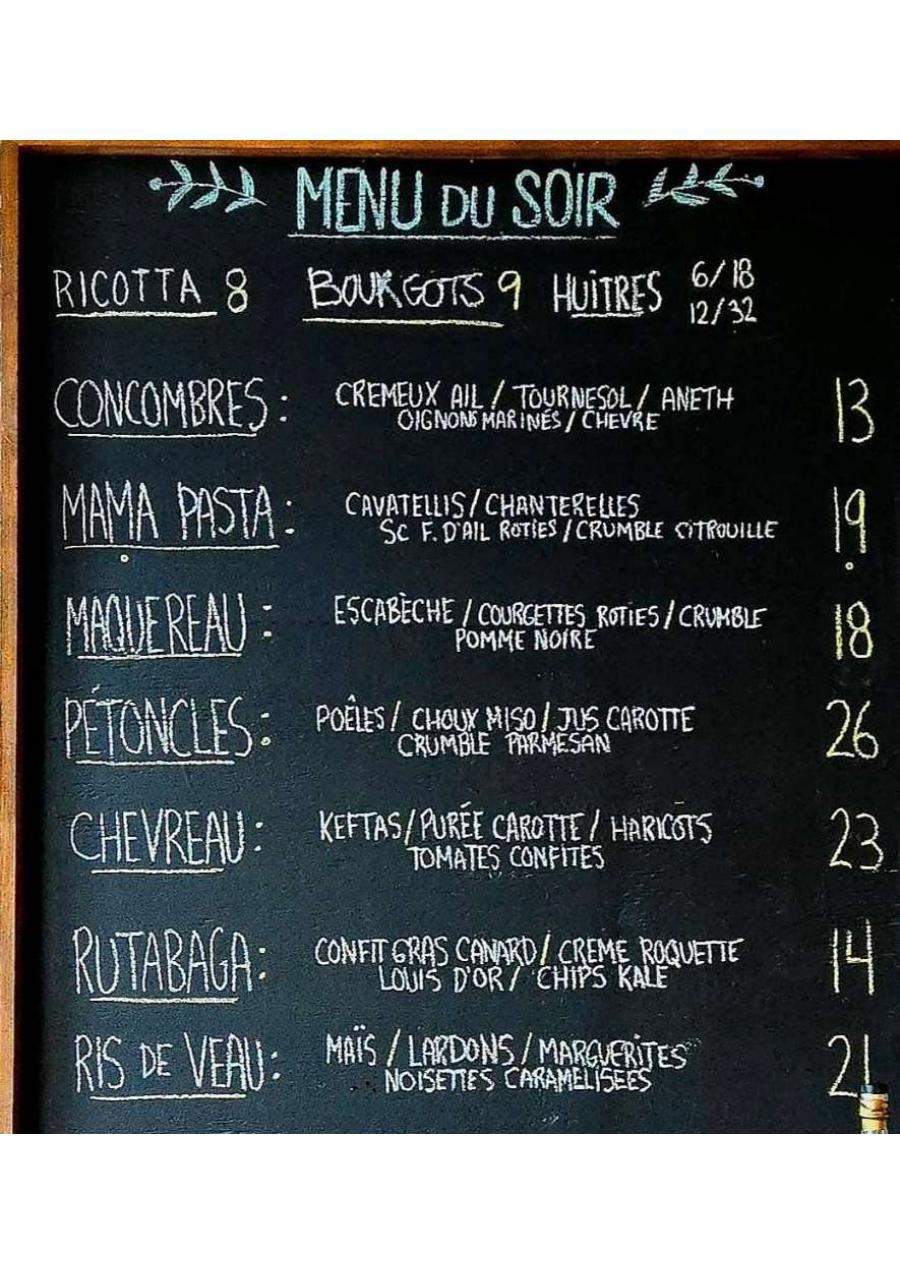 MENU DU SOIR
RICOTTA 8 BOURGOTS 9 HUÎTRES 6/18
12/32
CONCOMBRES: CREMEUX AIL / TOURNESOL / ANETH 13
OIGNONS MARINÉS / CHEVRE
MAMA PASTA: CAVATELLIS / CHANTERELLES 19
SC F. D'AIL ROTIES / CRUMBLE CITROUILLE
MAQUEREAU: ESCABÈCHE / COURGETTES ROTIES / CRUMBLE 18
POMME NOIRE
PÉTONCLES: POÊLES / CHOUX MISO / JUS CAROTTE 26
CRUMBLE PARMESAN
CHEVREAU: KEFTAS / PURÉE CAROTTE / HARICOTS 23
TOMATES CONFITES
RUTABAGA: CONFIT GRAS CANARD / CREME ROQUETTE 14
LOUIS D'OR / CHIPS KALE
RIS DE VEAU: MAÏS / LARDONS / MARGUERITES 21
NOISETTES CARAMELISEES